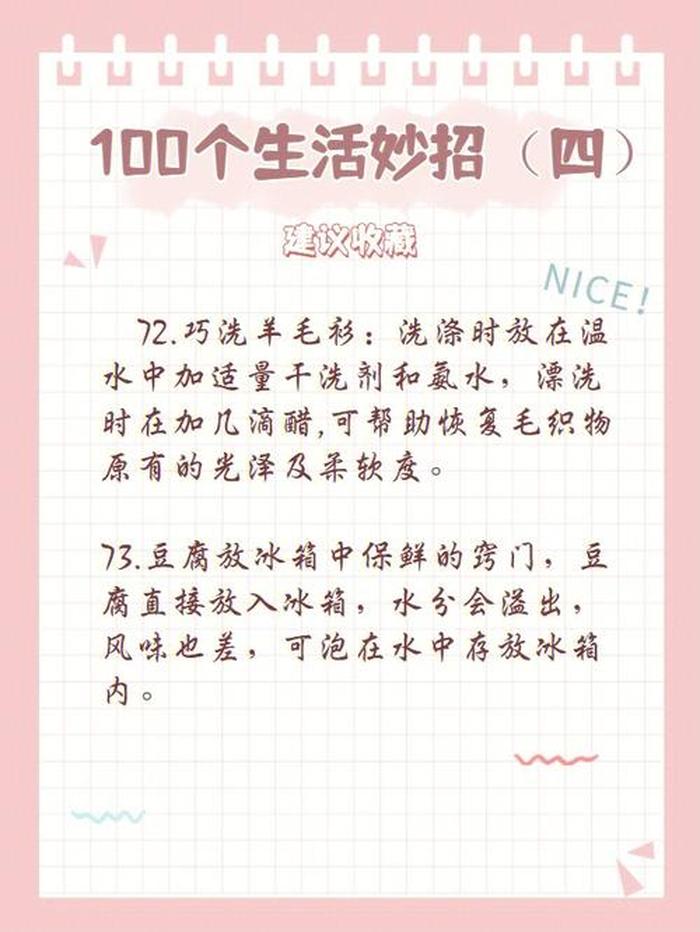 100个生活妙招（四）
建议收藏
NICE!
72.巧洗羊毛衫：洗涤时放在温
水中加适量干洗剂和氨水，漂洗
时在加几滴醋,可帮助恢复毛织物
原有的光泽及柔软度。
73.豆腐放冰箱中保鲜的窍门，豆
腐直接放入冰箱，水分会溢出，
风味也差，可泡在水中存放冰箱
内。